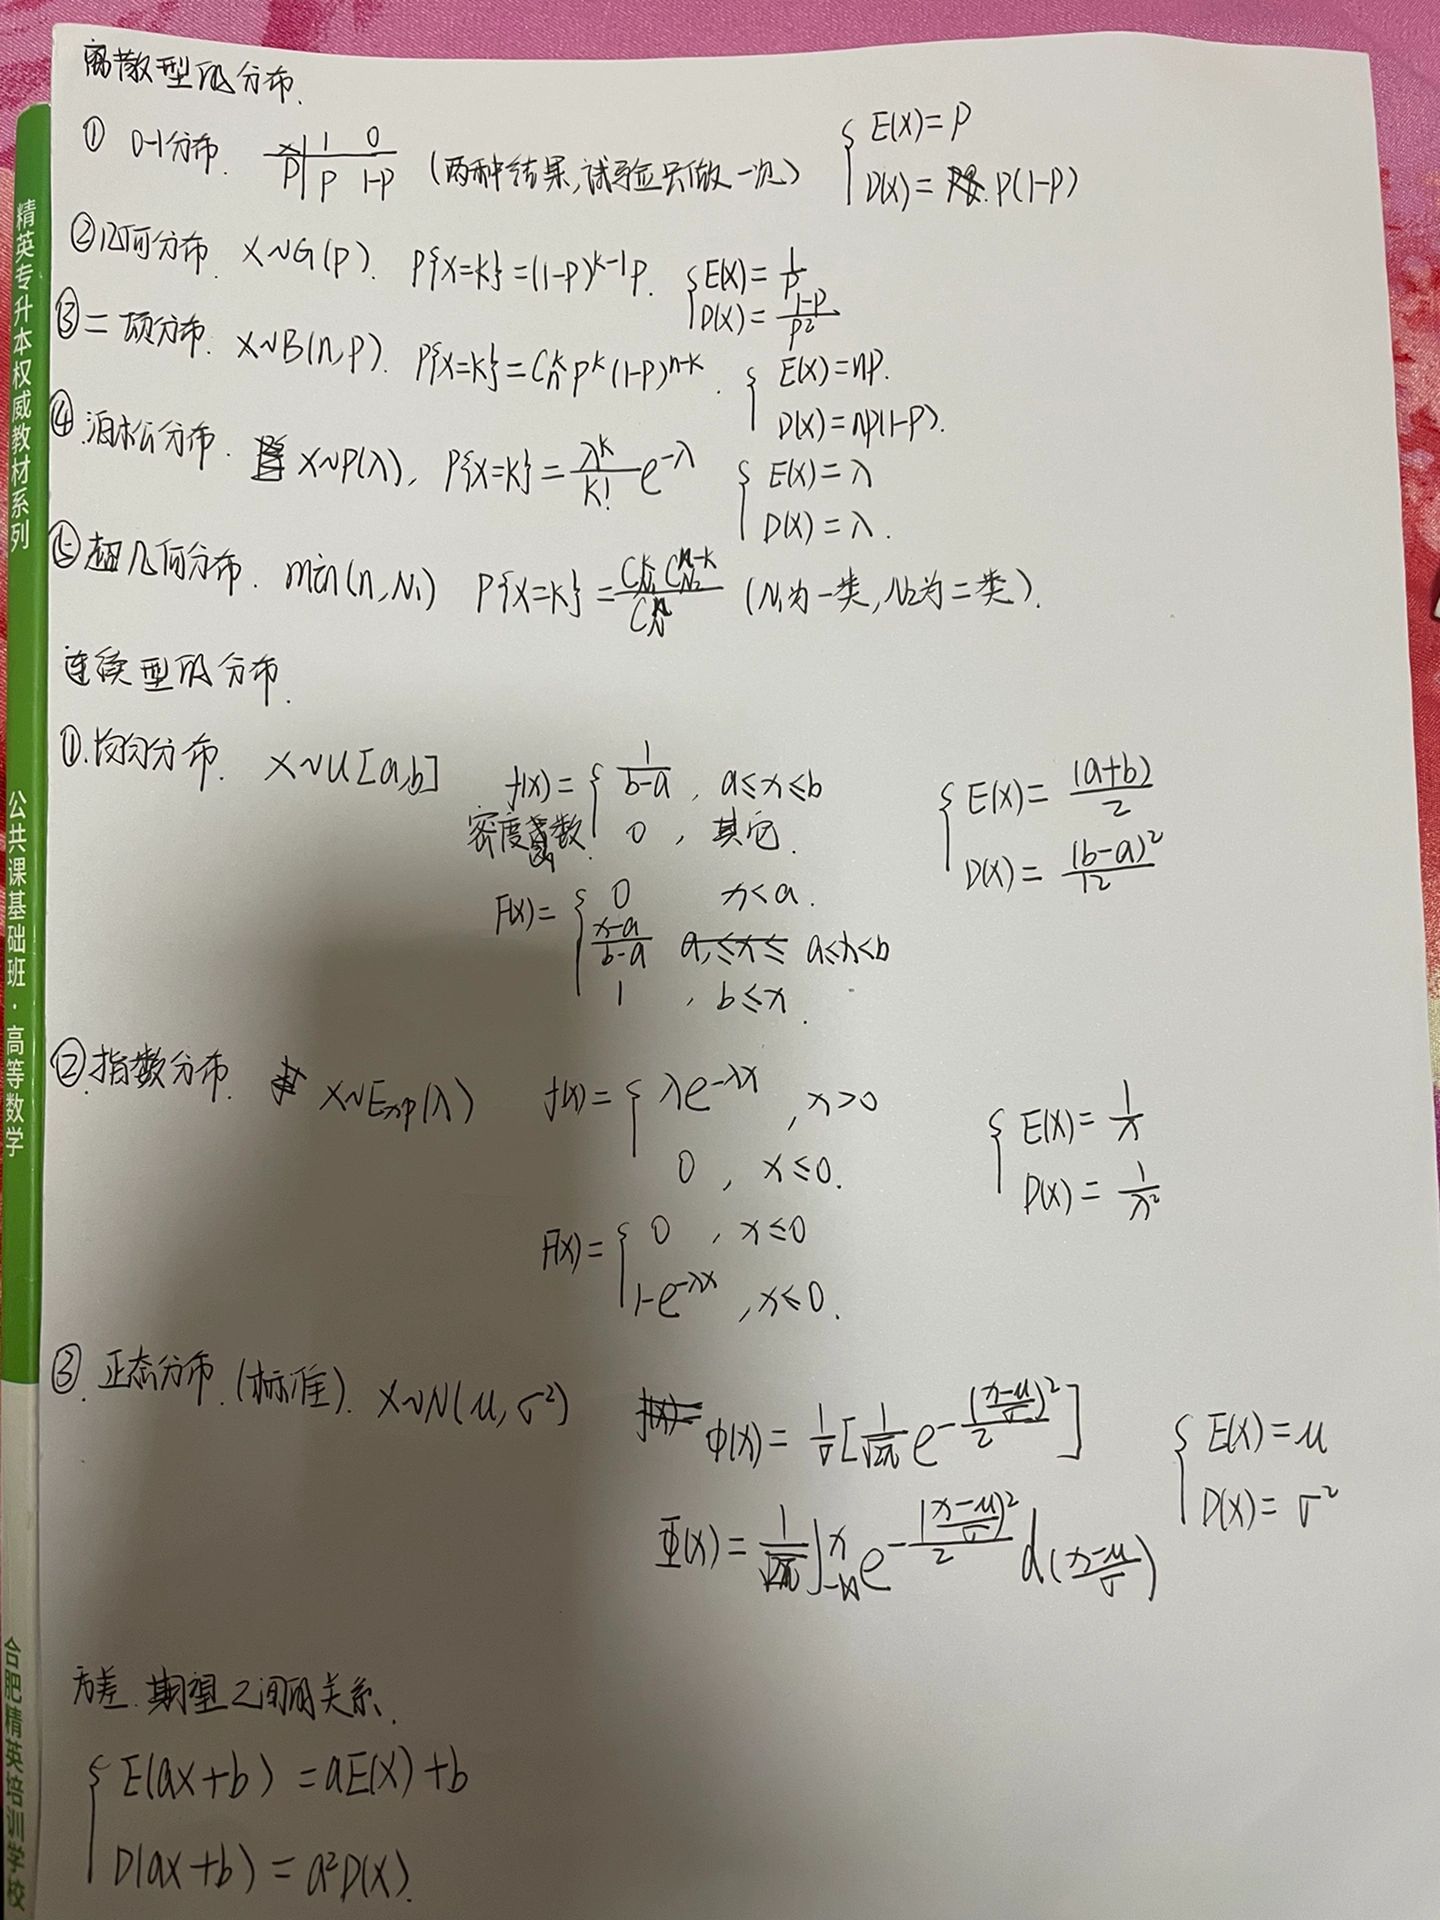 离散型的分布.
① 0-1分布. X | 1 0 (两种结果,试验只做一次) { E(X)=P
P | P 1-P D(X)= P(1-P)
②几何分布 X~G(P). P{X=K}=(1-P)^{K-1}P. { E(X)=1/P
D(X)=(1-P)/P²
③二项分布. X~B(n,P). P{X=K}=C_n^K P^K (1-P)^{n-K}. { E(X)=nP.
D(X)=nP(1-P).
④泊松分布. X~P(λ), P{X=K}=λ^K/K! e^{-λ} { E(X)=λ
D(X)=λ.
⑤超几何分布. min(n,N₁) P{X=K}=C_{N₁}^K C_{N₂}^{n-K}/C_N^n (N₁为一类,N₂为二类).
连续型的分布.
①.均匀分布. X~U[a,b] f(x)= { 1/(b-a), a≤x≤b { E(X)=(a+b)/2
密度函数. 0, 其它. D(X)=(b-a)²/12
F(X)= { 0 x<a.
(x-a)/(b-a) a≤x≤ a≤x<b
1, b≤x.
②指数分布. X~Exp(λ) f(x)= { λe^{-λx}, x>0 { E(X)=1/λ
0, x≤0. D(X)=1/λ²
F(X)= { 0, x≤0
1-e^{-λx}, x≤0.
③.正态分布.(标准). X~N(μ,σ²) f(x)= φ(X)=1/σ[1/√2π e^{-((x-μ)/σ)²/2}] { E(X)=μ
Φ(X)=1/√2π ∫_{-∞}^x e^{-((x-μ)/σ)²/2} d((x-μ)/σ) D(X)=σ²
方差.期望之间的关系.
{ E(aX+b)=aE(X)+b
D(aX+b)=a²D(X).
精英专升本权威教材系列
公共课基础班·高等数学
合肥精英培训学校